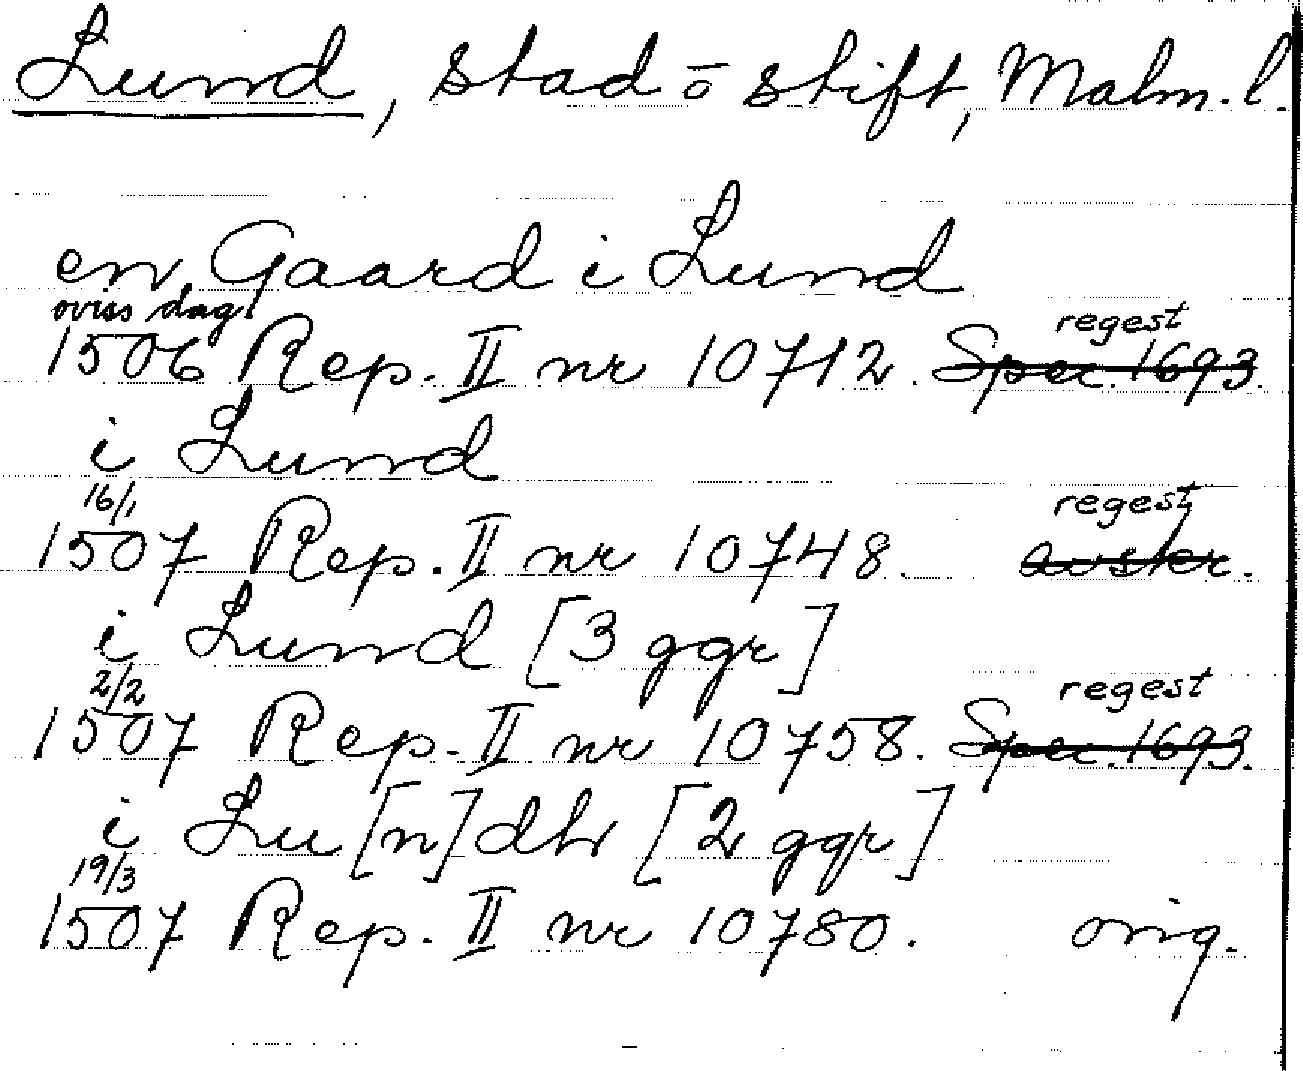 Lund, stad o stift, Malm. l.
en Gaard i Lund
oviss dag
regest
1506 Rep. II nr 10712. Spec. 1693.
i Lund
16/1
regest
1507 Rep. II nr 10748. avskr.
i Lund [3 ggr]
2/2
regest
1507 Rep. II nr 10758. Spec. 1693.
i Lu[n]dh [2 ggr]
19/3
1507 Rep. II nr 10780. orig.